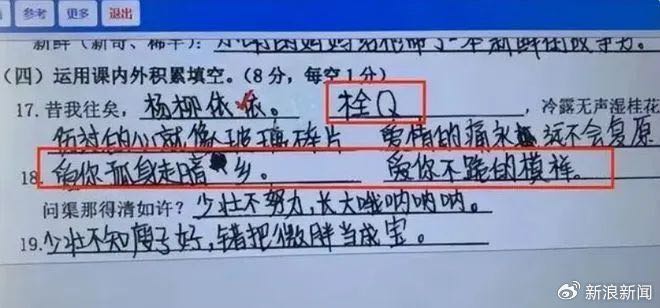 参考 更多 退出
(四) 运用课内外积累填空。(8分，每空1分)
17. 昔我往矣，杨柳依依。 栓Q ，冷露无声湿桂花
伤过的心就像玻璃碎片 爱情的痛永远不会复原
18. 爱你孤身走暗乡。 爱你不跪的模样。
问渠那得清如许？少壮不努力，长大哦呐呐呐。
19. 少壮不知瘦子好，错把微胖当成宝。
新浪新闻